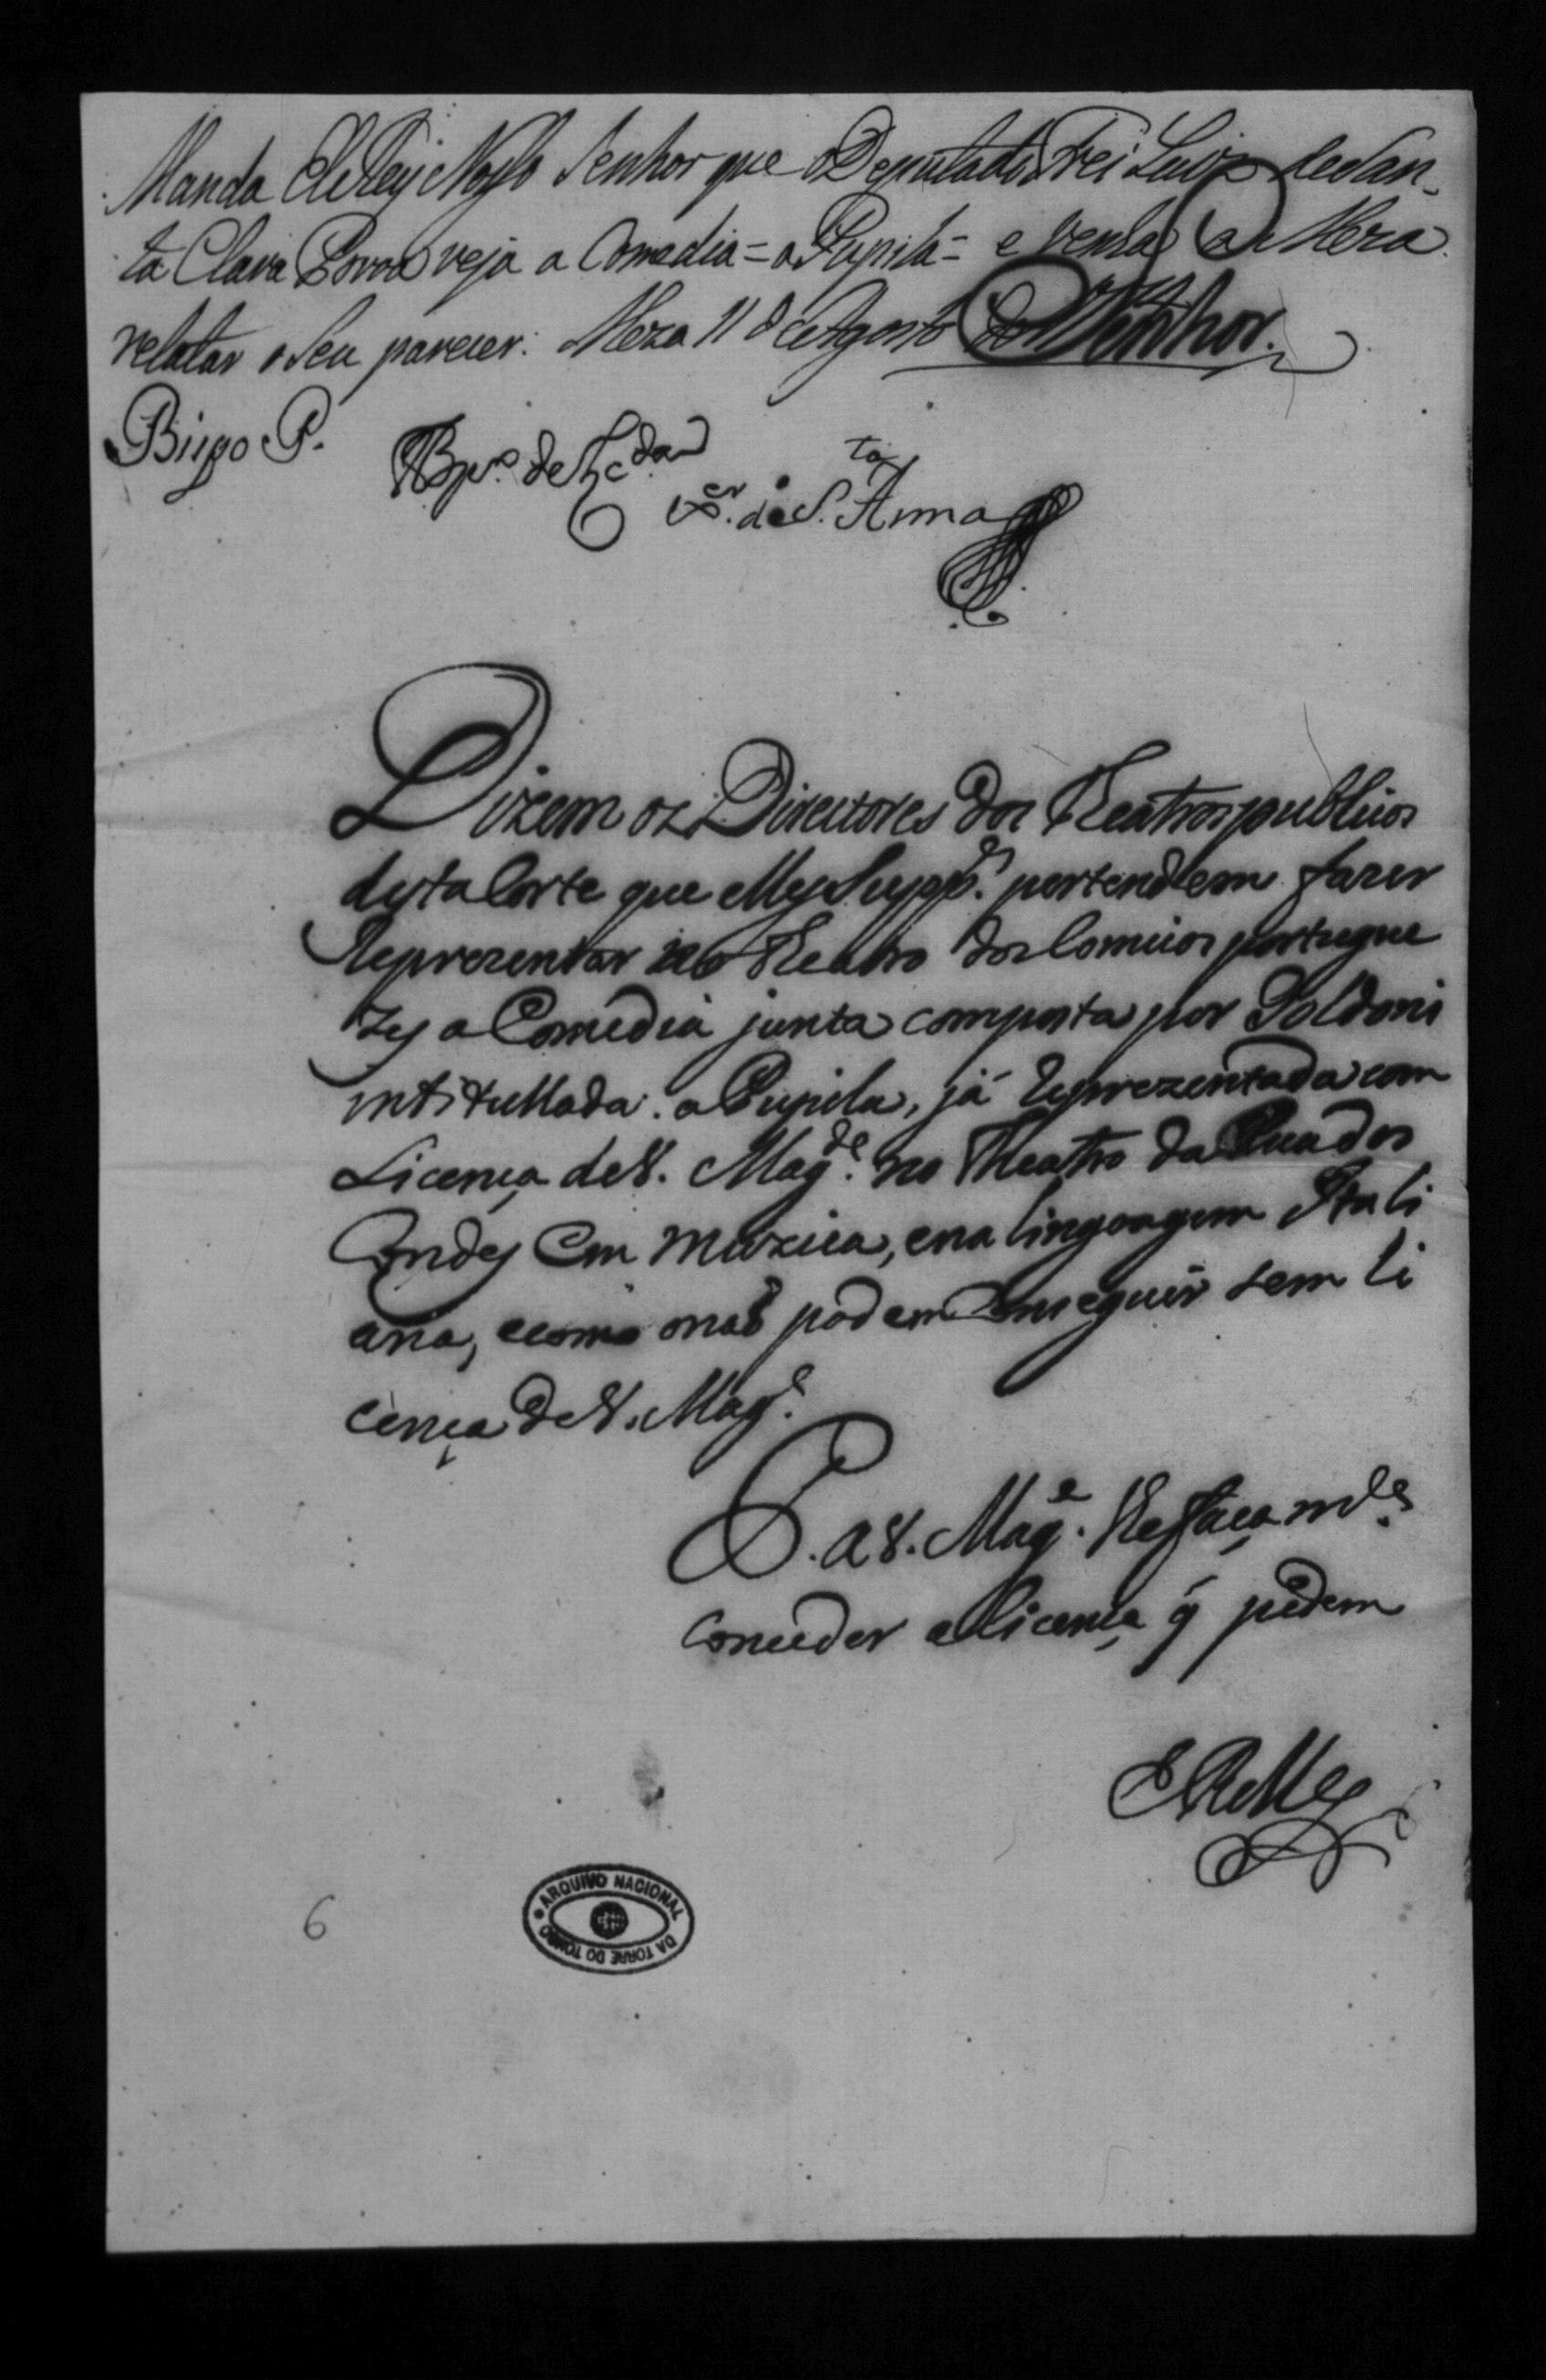 Manda ElRey Nosso Senhor que o Deputado Frei Luiz de San-
ta Clara Povoa veja a Comedia = a Pupila = e venha á Meza
relatar o seu parecer. Meza 11 de Agosto de
Senhor.
Bispo P.
Xer. de S.ta Anna
Dizem os Directores dos Theatros publicos
desta Corte que elles Supp.es pertendem fazer
reprezentar no Theatro dos Comicos portugue
zes a Comedia junta composta por Goldoni
intitullada. a Pupila, já reprezentada com
Licença de V. Mag.de no Theatro da Rua dos
Condes em muzica, e na lingoagem Itali
ana, e como naõ podem conseguir sem li
cença de V. Mag.e
P. a V. Mag.e lhe faça m.ce
conceder a licença q̃ pedem
E R Mce
6
ARQUIVO NACIONAL
DA TORRE DO TOMBO